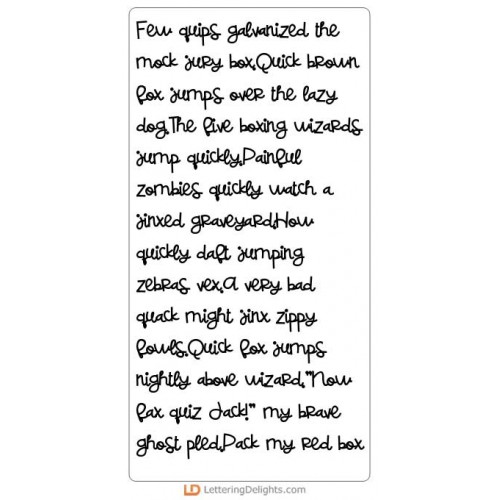 Few quips galvanized the
mock jury box.Quick brown
fox jumps over the lazy
dog.The five boxing wizards
jump quickly.Painful
zombies quickly watch a
jinxed graveyard.How
quickly daft jumping
zebras vex.A very bad
quack might jinx zippy
fowls.Quick fox jumps
nightly above wizard."Now
fax quiz Jack!" my brave
ghost pled.Pack my red box
LD LetteringDelights.com